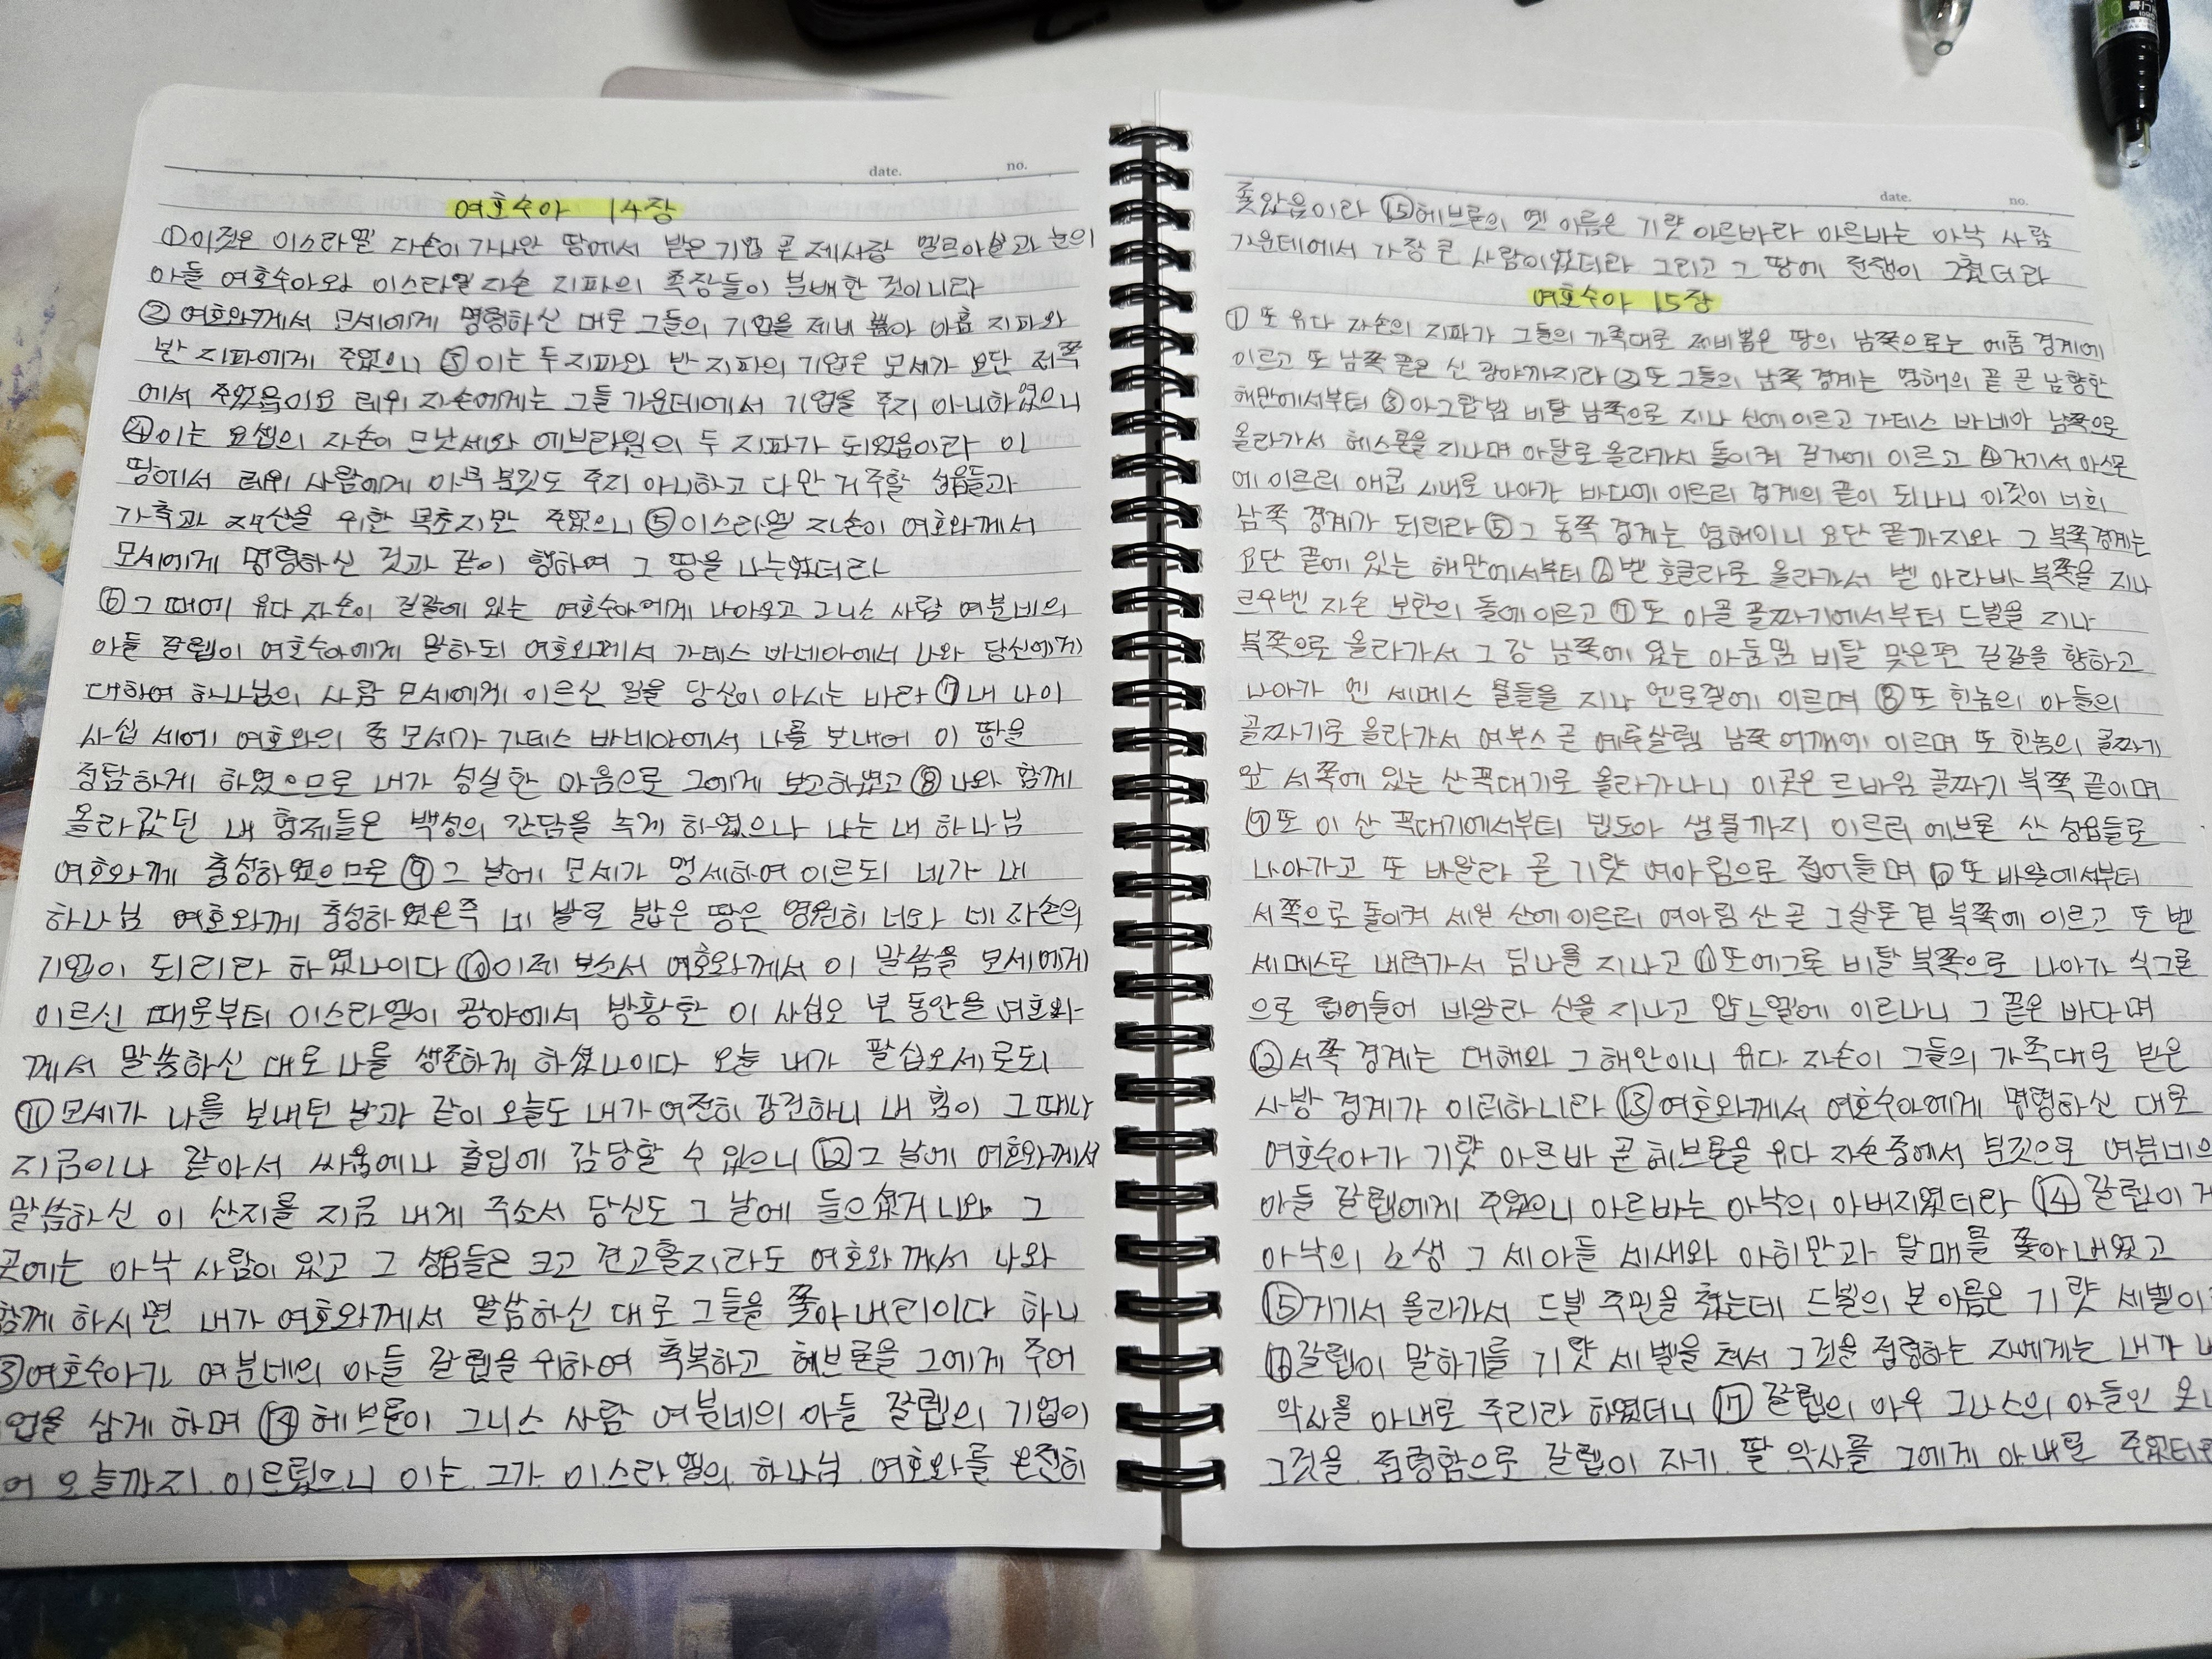 date. no.
여호수아 14장
①이것은 이스라엘 자손이 가나안 땅에서 받은 기업 곧 제사장 엘르아살과 눈의
아들 여호수아와 이스라엘 자손 지파의 족장들이 분배한 것이니라
②여호와께서 모세에게 명령하신 대로 그들의 기업을 제비 뽑아 아홉 지파와
반 지파에게 주었으니 ③이는 두 지파와 반 지파의 기업은 모세가 요단 저쪽
에서 주었음이요 레위 자손에게는 그들 가운데에서 기업을 주지 아니하였으니
④이는 요셉의 자손이 므낫세와 에브라임의 두 지파가 되었음이라 이
땅에서 레위 사람에게 아무 분깃도 주지 아니하고 다만 거주할 성읍들과
가축과 재산을 위한 목초지만 주었으니 ⑤이스라엘 자손이 여호와께서
모세에게 명령하신 것과 같이 행하여 그 땅을 나누었더라
⑥그 때에 유다 자손이 길갈에 있는 여호수아에게 나아오고 그니스 사람 여분네의
아들 갈렙이 여호수아에게 말하되 여호와께서 가데스 바네아에서 나와 당신에게
대하여 하나님의 사람 모세에게 이르신 일을 당신이 아시는 바라 ⑦내 나이
사십 세에 여호와의 종 모세가 가데스 바네아에서 나를 보내어 이 땅을
정탐하게 하였으므로 내가 성실한 마음으로 그에게 보고하였고 ⑧나와 함께
올라갔던 내 형제들은 백성의 간담을 녹게 하였으나 나는 내 하나님
여호와께 충성하였으므로 ⑨그 날에 모세가 맹세하여 이르되 네가 내
하나님 여호와께 충성하였은즉 네 발로 밟은 땅은 영원히 너와 네 자손의
기업이 되리라 하였나이다 ⑩이제 보소서 여호와께서 이 말씀을 모세에게
이르신 때로부터 이스라엘이 광야에서 방황한 이 사십오 년 동안을 여호와
께서 말씀하신 대로 나를 생존하게 하셨나이다 오늘 내가 팔십오세로되
⑪모세가 나를 보내던 날과 같이 오늘도 내가 여전히 강건하니 내 힘이 그때나
지금이나 같아서 싸움에나 출입에 감당할 수 있으니 ⑫그 날에 여호와께서
말씀하신 이 산지를 지금 내게 주소서 당신도 그 날에 들으셨거니와 그
곳에는 아낙 사람이 있고 그 성읍들은 크고 견고할지라도 여호와께서 나와
함께 하시면 내가 여호와께서 말씀하신 대로 그들을 쫓아내리이다 하니
여호수아가 여분네의 아들 갈렙을 위하여 축복하고 헤브론을 그에게 주어
업을 삼게 하매 ⑭헤브론이 그니스 사람 여분네의 아들 갈렙의 기업이
어 오늘까지 이르렀으니 이는 그가 이스라엘의 하나님 여호와를 온전히
date. no.
쫓았음이라 ⑮헤브론의 옛 이름은 기럇 아르바라 아르바는 아낙 사람
가운데에서 가장 큰 사람이었더라 그리고 그 땅에 전쟁이 그쳤더라
여호수아 15장
①또 유다 자손의 지파가 그들의 가족대로 제비뽑은 땅의 남쪽으로는 에돔 경계에
이르고 또 남쪽 끝은 신 광야까지라 ②또 그들의 남쪽 경계는 염해의 끝 곧 남향한
해만에서부터 ③아그랍빔 비탈 남쪽으로 지나 신에 이르고 가데스 바네아 남쪽으로
올라가서 헤스론을 지나며 아달로 올라가서 돌이켜 갈가에 이르고 ④거기서 아스몬
에 이르러 애굽 시내로 나아가 바다에 이르러 경계의 끝이 되나니 이것이 너희
남쪽 경계가 되리라 ⑤그 동쪽 경계는 염해이니 요단 끝까지요 그 북쪽경계는
요단 끝에 있는 해만에서부터 ⑥벧 호글라로 올라가서 벧 아라바 북쪽을 지나
르우벤 자손 보한의 돌에 이르고 ⑦또 아골 골짜기에서부터 드빌을 지나
북쪽으로 올라가서 그 강 남쪽에 있는 아둠밈 비탈 맞은편 길갈을 향하고
나아가 엔 세메스 물들을 지나 엔로겔에 이르며 ⑧또 힌놈의 아들의
골짜기로 올라가서 여부스 곧 예루살렘 남쪽 어깨에 이르며 또 힌놈의 골짜기
앞 서쪽에 있는 산 꼭대기로 올라가나니 이곳은 르바임 골짜기 북쪽 끝이며
⑨또 이 산 꼭대기에서부터 넵도아 샘물까지 이르러 에브론 산 성읍들로
나아가고 또 바알라 곧 기럇 여아림으로 접어들며 ⑩또 바알에서부터
서쪽으로 돌이켜 세일 산에 이르러 여아림 산 곧 그살론 곁 북쪽에 이르고 또 벧
세메스로 내려가서 딤나를 지나고 ⑪또 에그론 비탈 북쪽으로 나아가 식그론
으로 접어들어 바알라 산을 지나고 얍느엘에 이르나니 그 끝은 바다며
⑫서쪽 경계는 대해와 그 해안이니 유다 자손이 그들의 가족대로 받은
사방 경계가 이러하니라 ⑬여호와께서 여호수아에게 명령하신 대로
여호수아가 기럇 아르바 곧 헤브론을 유다 자손중에서 분깃으로 여분네의
아들 갈렙에게 주었으니 아르바는 아낙의 아버지였더라 ⑭갈렙이 거
아낙의 소생 그 세아들 세새와 아히만과 달매를 쫓아내었고
⑮거기서 올라가서 드빌 주민을 쳤는데 드빌의 본 이름은 기럇 세벨이
⑯갈렙이 말하기를 기럇 세벨을 쳐서 그것을 점령하는 자에게는 내가 내
악사를 아내로 주리라 하였더니 ⑰갈렙의 아우 그나스의 아들인 옷니
그것을 점령함으로 갈렙이 자기 딸 악사를 그에게 아내로 주었더라